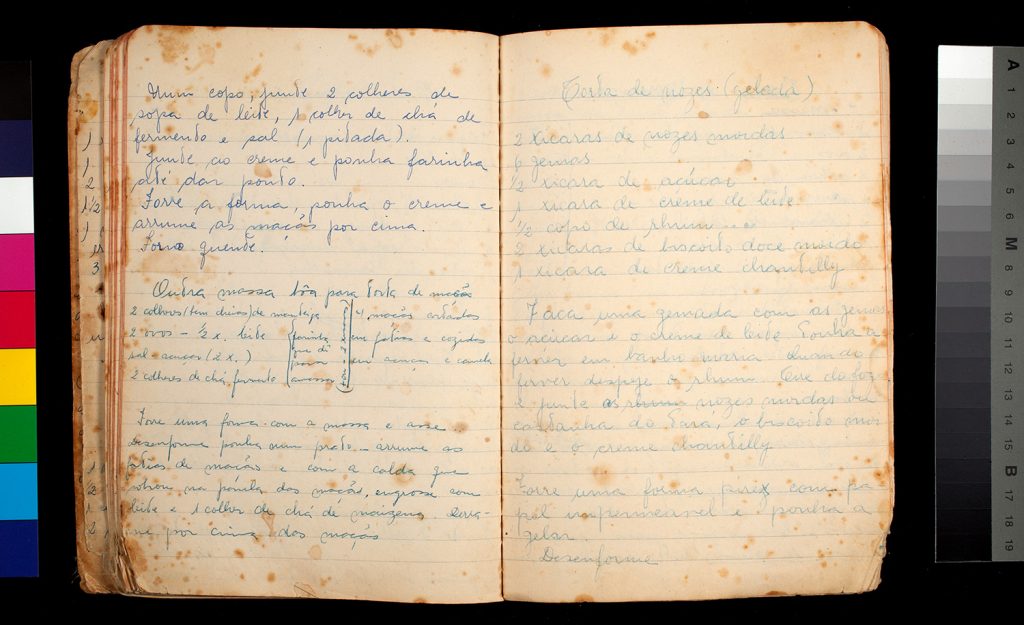 Num copo, junte 2 colheres de
sopa de leite, 1 colher de chá de
fermento e sal (1 pitada).
Junte ao creme e ponha farinha
até dar ponto.
Forre a forma, ponha o creme e
arrume as maçãs por cima.
Forno quente.
Outra massa bôa para torta de maçãs
2 colheres (bem cheias) de manteiga
2 ovos - ½ x. leite
sal assucar (2 x.)
2 colheres de chá fermento
farinha
que dê
para
amassar
4 maçãs cortadas
em fatias e cozidas
em assucar e canela
Forre uma forma com a massa e asse.
Desenforme ponha num prato - arrume as
fatias de maçãs e com a calda que
sobrou na panela das maçãs, engrosse com
leite e 1 colher de chá de maizena. Derra-
me por cima das maçãs
Torta de nozes (gelada)
2 xicaras de nozes moidas
6 gemas
½ xicara de açúcar
1 xicara de creme de leite
½ copo de rhum
2 xicaras de biscoito doce moido
1 xicara de creme chantilly
Faca uma gemada com as gemas
o açúcar e o creme de leite. Ponha a
ferver em banho maria. Quando
ferver despeje o rhum. Tire do fogo
e junte as rhum nozes moidas ou
castanha do Pará, o biscoito moi-
do e o creme chantilly.
Forre uma forma pirex com pa-
pel impermeavel e ponha a
gelar.
Desenforme
A
1
2
3
4
5
6
M
8
9
10
11
12
13
14
15
B
17
18
19